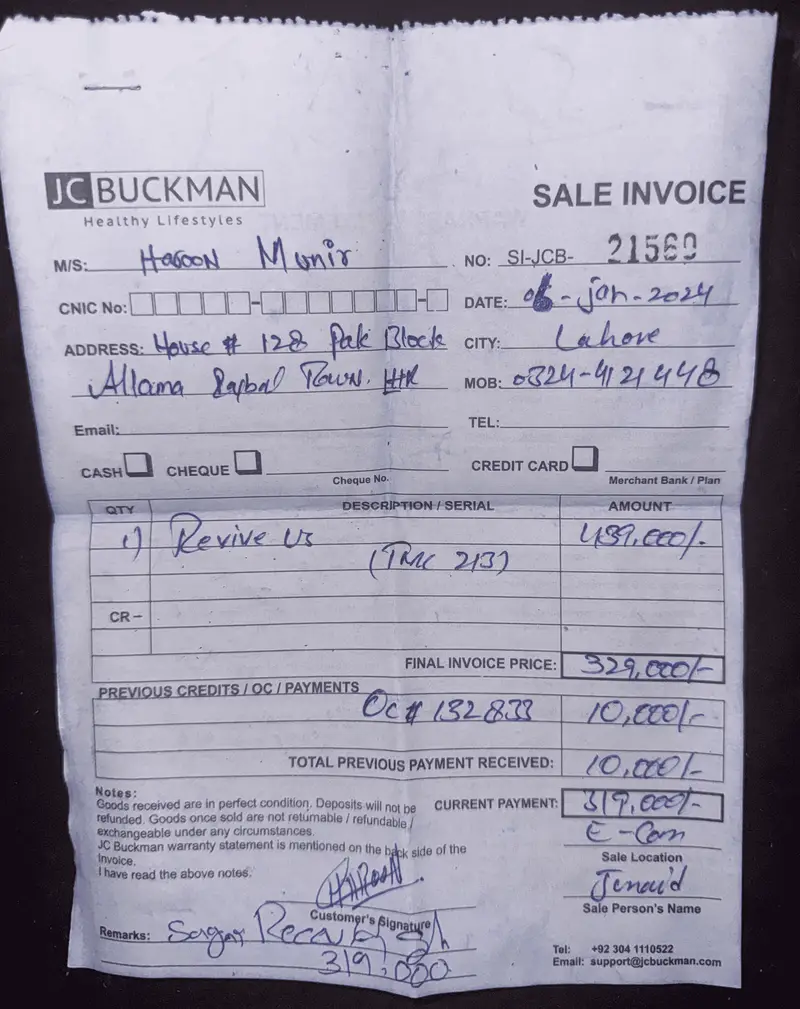 JC BUCKMAN
Healthy Lifestyles
SALE INVOICE
M/S: Haroon Munir
NO: SI-JCB- 21569
CNIC No:
DATE: 06-Jan-2024
ADDRESS: House # 128 Pak Block
CITY: Lahore
Allama Iqbal Town.
MOB: 0324-4121448
Email:
TEL:
CASH CHEQUE
Cheque No.
CREDIT CARD
Merchant Bank / Plan
QTY DESCRIPTION / SERIAL AMOUNT
1) Revive Us 489,000/-
(TMC 213)
CR –
FINAL INVOICE PRICE: 329,000/-
PREVIOUS CREDITS / OC / PAYMENTS
OC # 132833 10,000/-
TOTAL PREVIOUS PAYMENT RECEIVED: 10,000/-
Notes:
Goods received are in perfect condition. Deposits will not be
refunded. Goods once sold are not returnable / refundable /
exchangeable under any circumstances.
JC Buckman warranty statement is mentioned on the back side of the
Invoice.
I have read the above notes.
CURRENT PAYMENT: 319,000/-
E-Com
Sale Location
Junaid
Sale Person's Name
HAROON
Customer's Signature
Remarks:
319,000
Tel: +92 304 1110522
Email: support@jcbuckman.com